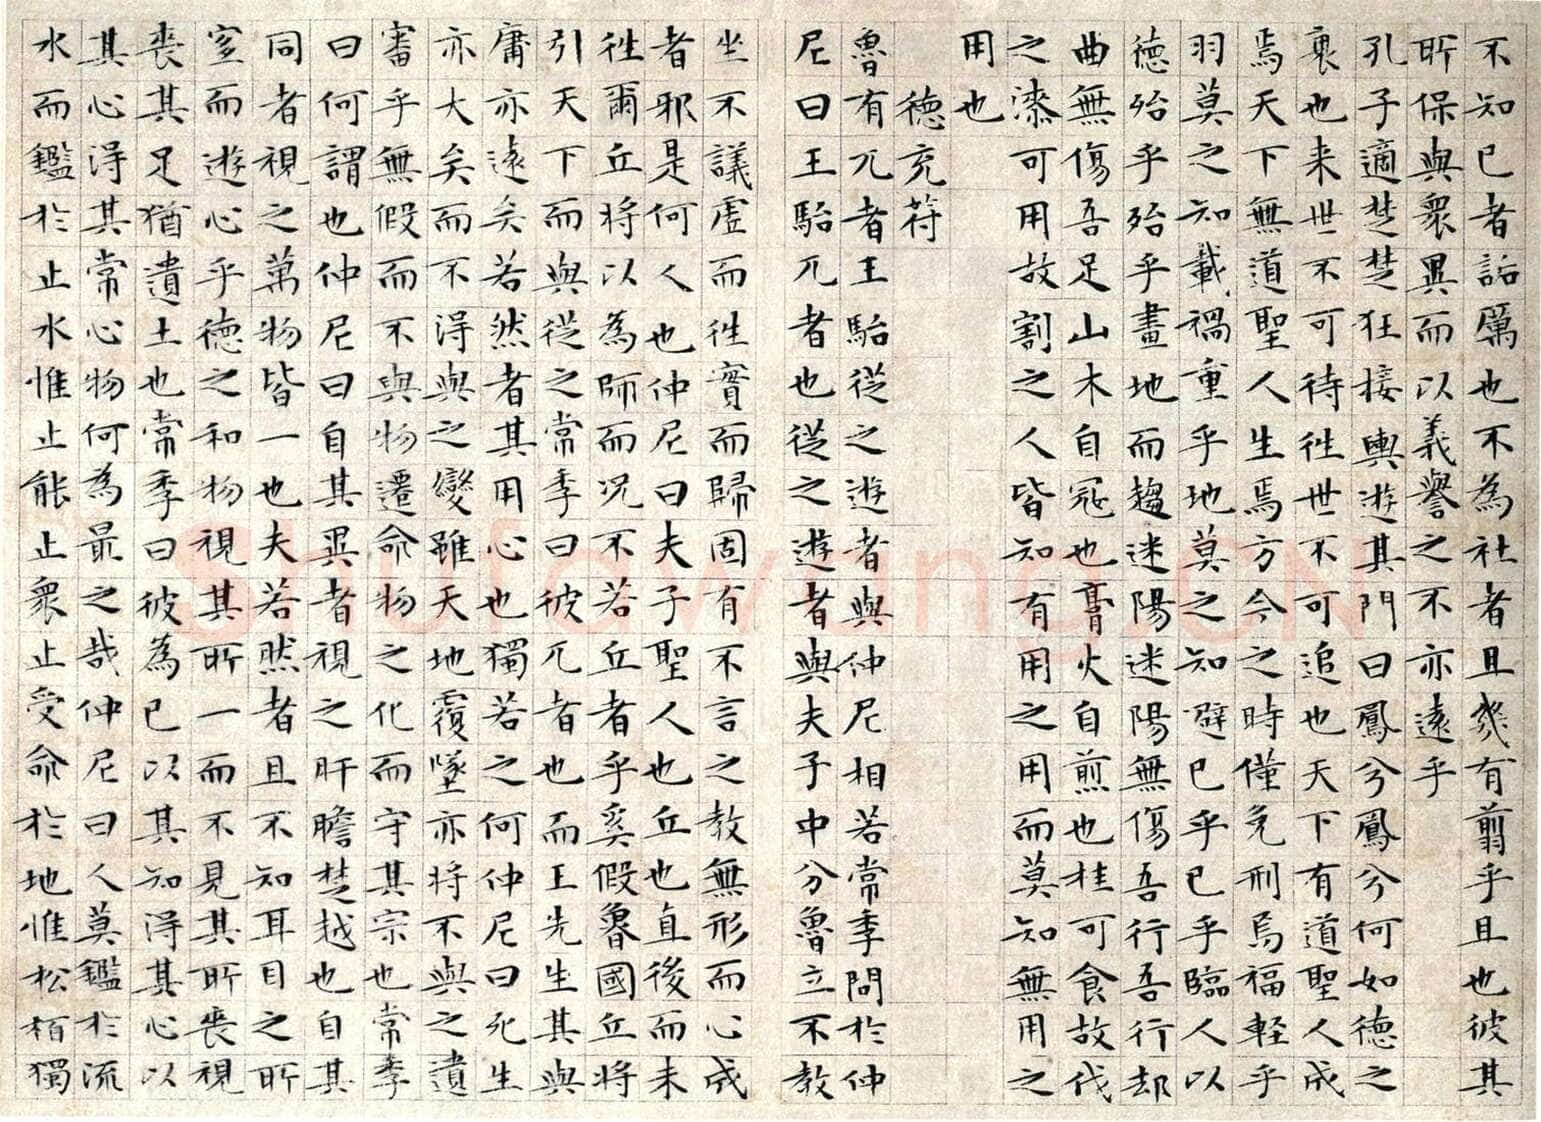 不知已者詬厲也不為社者且幾有翦乎且也彼其
所保與衆異而以義譽之不亦遠乎
孔子適楚楚狂接輿遊其門曰鳳兮鳳兮何如德之
衰也来世不可待往世不可追也天下有道聖人成
焉天下無道聖人生焉方今之時僅免刑焉福輕乎
羽莫之知載禍重乎地莫之知避已乎已乎臨人以
德殆乎殆乎畫地而趨迷陽迷陽無傷吾行吾行却
曲無傷吾足山木自寇也膏火自煎也桂可食故伐
之漆可用故割之人皆知有用之用而莫知無用之
用也
德充符
魯有兀者王駘從之遊者與仲尼相若常季問於仲
尼曰王駘兀者也從之遊者與夫子中分魯立不教
坐不議虛而往實而歸固有不言之教無形而心成
者邪是何人也仲尼曰夫子聖人也丘也直後而未
往爾丘將以為師而况不若丘者乎奚假魯國丘將
引天下而與從之常季曰彼兀者也而王先生其與
庸亦遠矣若然者其用心也獨若之何仲尼曰死生
亦大矣而不得與之變雖天地覆墜亦將不與之遺
審乎無假而不與物遷命物之化而守其宗也常季
曰何謂也仲尼曰自其異者視之肝膽楚越也自其
同者視之萬物皆一也夫若然者且不知耳目之所
宜而遊心乎德之和物視其所一而不見其所喪視
喪其足猶遺土也常季曰彼為已以其知得其心以
其心得其常心物何為最之哉仲尼曰人莫鑑於流
水而鑑於止水惟止能止衆止受命於地惟松栢獨
Shufawung.CN